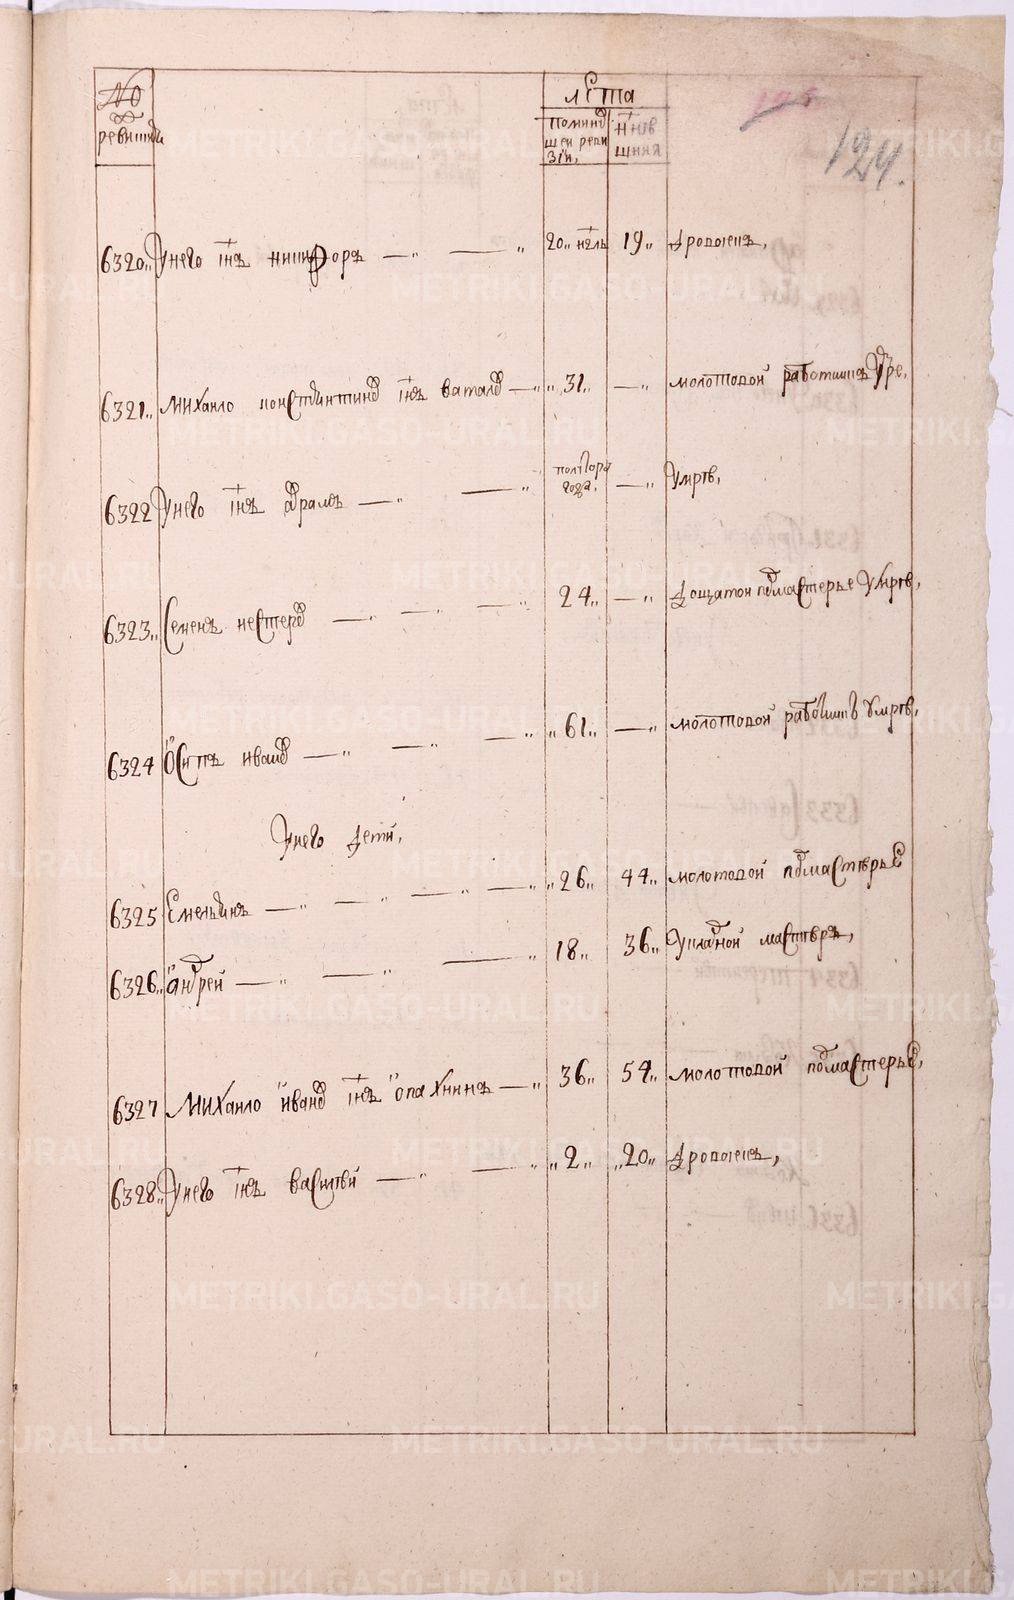 №
ревишки
лета
Помину
шеи реви
зіи,
Ннѣ
шния
124.
6320,, Унего снъ никифоръ 20,, нѣль 19,, дровосецъ,
6321,, Михаило констянтинов снъ ,, 31,, молотовой работникъ
6322 Унего снъ полтора
года, Умрѣ,
6323,, Семенъ нестеров 24,, дощатои подмастерье Умрѣ,
6324 Осипъ иванов ,, 61,, молотовой работникъ Умрѣ,
Унего дети,
6325 Емельянъ ,, 26,, 44,, молотовой подмастѣрье
6326,, андрей 18,, 36,, Укладной мастеръ,
6327 Михаило иванов снъ опахнинъ 36,, 54,, молотовой подмастерье,
6328,, Унего снъ василей ,, 2,, ,, 20,, дровосецъ,
METRIKI.GASO-URAL.RU